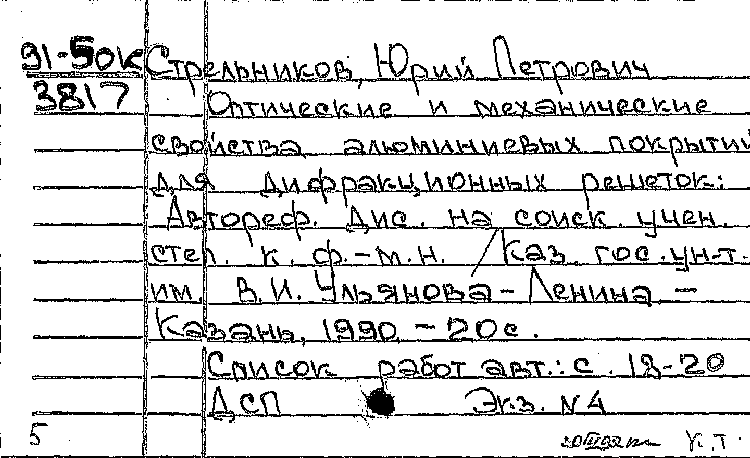 91-50К Стрельников, Юрий Петрович
3817 Оптические и механические
свойства алюминиевых покрытий
для дифракционных решеток:
Автореф. Дис. на соиск. учен.
степ. к. ф.-м.н. / Каз. гос. ун-т.
им. В.И. Ульянова-Ленина. -
Казань, 1990. - 20 с.
Список работ авт.: с. 18-20
ДСП Экз. N 4
5 К.Т.